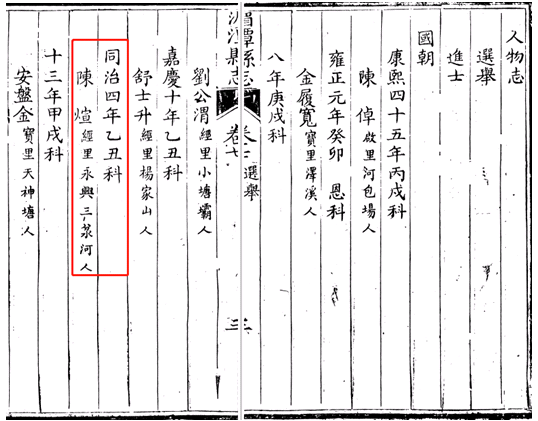 人物志
選舉
進士
國朝
康熙四十五年丙戌科
陳倬啟里河包場人
雍正元年癸卯 恩科
金履寬寶里澤溪人
八年庚戌科
湄潭縣志 卷七 選舉 三
劉公渭經里小塘壩人
嘉慶十年乙丑科
舒士升經里楊家山人
同治四年乙丑科
陳煊經里永興三淥河人
十三年甲戌科
安盤金寶里天神塘人